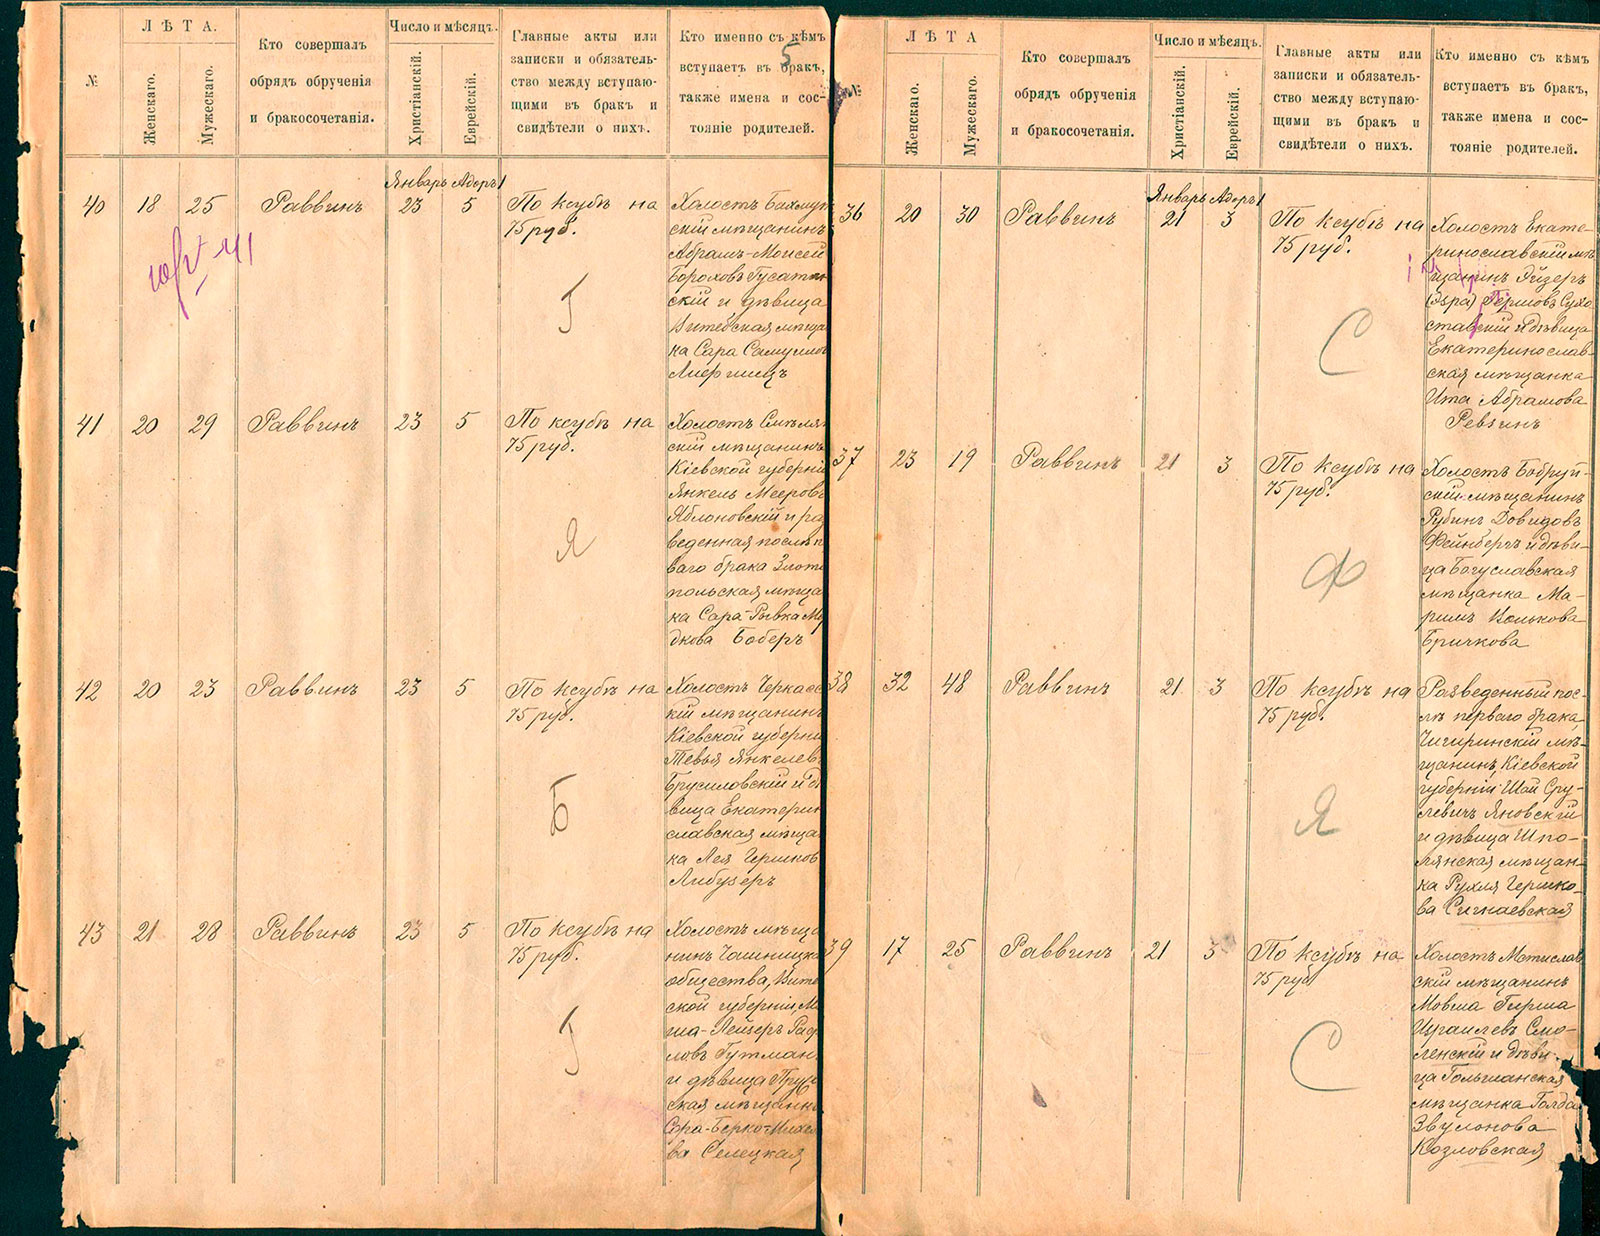 №
ЛѢТА.
Женскаго.
Мужескаго.
Кто совершалъ
обрядъ обрученія
и бракосочетанія.
Число и мѣсяцъ.
Христіанскій.
Еврейскій.
Главные акты или
записки и обязатель-
ство между вступаю-
щими въ бракъ и
свидѣтели о нихъ.
Кто именно съ кѣмъ
вступаетъ въ бракъ,
также имена и сос-
тояніе родителей.
5
Январь Адоръ I
40 18 25 Раввинъ 23 5 По ксубѣ на
75 руб.
Г
Холостъ Бахмут
скій мѣщанинъ
Абрамъ-Моисей
Бороховъ Гусатин
скій и дѣвица
Витебская мѣщан
ка Сара
41 20 29 Раввинъ 23 5 По ксубѣ на
75 руб.
Я
Холостъ Смѣлян
скій мѣщанинъ
Кіевской губерніи
Янкель Мееровъ
Яблоновскій и раз
веденная послѣ п
ваго брака Злото
польская мѣща
ка Сара-Рывка Мо
дкова Боберъ
42 20 23 Раввинъ 23 5 По ксубѣ на
75 руб.
Б
Холостъ Черкасс
кій мѣщанинъ
Кіевской губерні
Тевья Янкелев
Брусиловскій и дѣ
вица Екатерин
славская мѣща
ка Лея Гершков
Либузеръ
43 21 28 Раввинъ 23 5 По ксубѣ на
75 руб.
Г
Холостъ мѣща
нинъ Чашницка
общества, Вите
ской губерніи, Мо
ша-Лейзеръ Раф
ловъ Гутман
и дѣвица
ская мѣщанк
Сора-Берко-
ва Селецкая
№
ЛѢТА
Женскаго.
Мужескаго.
Кто совершалъ
обрядъ обрученія
и бракосочетанія.
Число и мѣсяцъ.
Христіанскій.
Еврейскій.
Главные акты или
записки и обязатель-
ство между вступаю-
щими въ бракъ и
свидѣтели о нихъ.
Кто именно съ кѣмъ
вступаетъ въ бракъ,
также имена и сос-
тояніе родителей.
Январь Адоръ I
36 20 30 Раввинъ 21 3 По ксубѣ на
75 руб.
С
Холостъ Екате-
ринославскій мѣ
щанинъ Эйзеръ
(Эзра) Гершовъ Сухо
ставскій и дѣвица
Екатеринослав-
ская мѣщанка
Ита Абрамова
Ревзинъ
37 23 19 Раввинъ 21 3 По ксубѣ на
75 руб.
Ф
Холостъ Бобруй-
скій мѣщанинъ
Рубинъ Довидовъ
Фейнбергъ и дѣви-
ца Богуславская
мѣщанка Ма-
римъ Волькова
Бричкова
38 32 48 Раввинъ 21 3 По ксубѣ на
75 руб.
Я
Разведенный пос-
лѣ перваго брака,
Чигиринскій мѣ-
щанинъ, Кіевской
губерніи Шай Сру-
левичъ Яновскій
и дѣвица Шпо-
лянская мѣщан-
ка Рухля Гершко-
ва Сигнаевская
39 17 25 Раввинъ 21 3 По ксубѣ на
75 руб.
С
Холостъ Мстислав
скій мѣщанинъ
Мовша Гирша
Израилевъ Смо-
ленскій и дѣви-
ца Гольшанская
мѣщанка Голда
Звулонова
Козловская